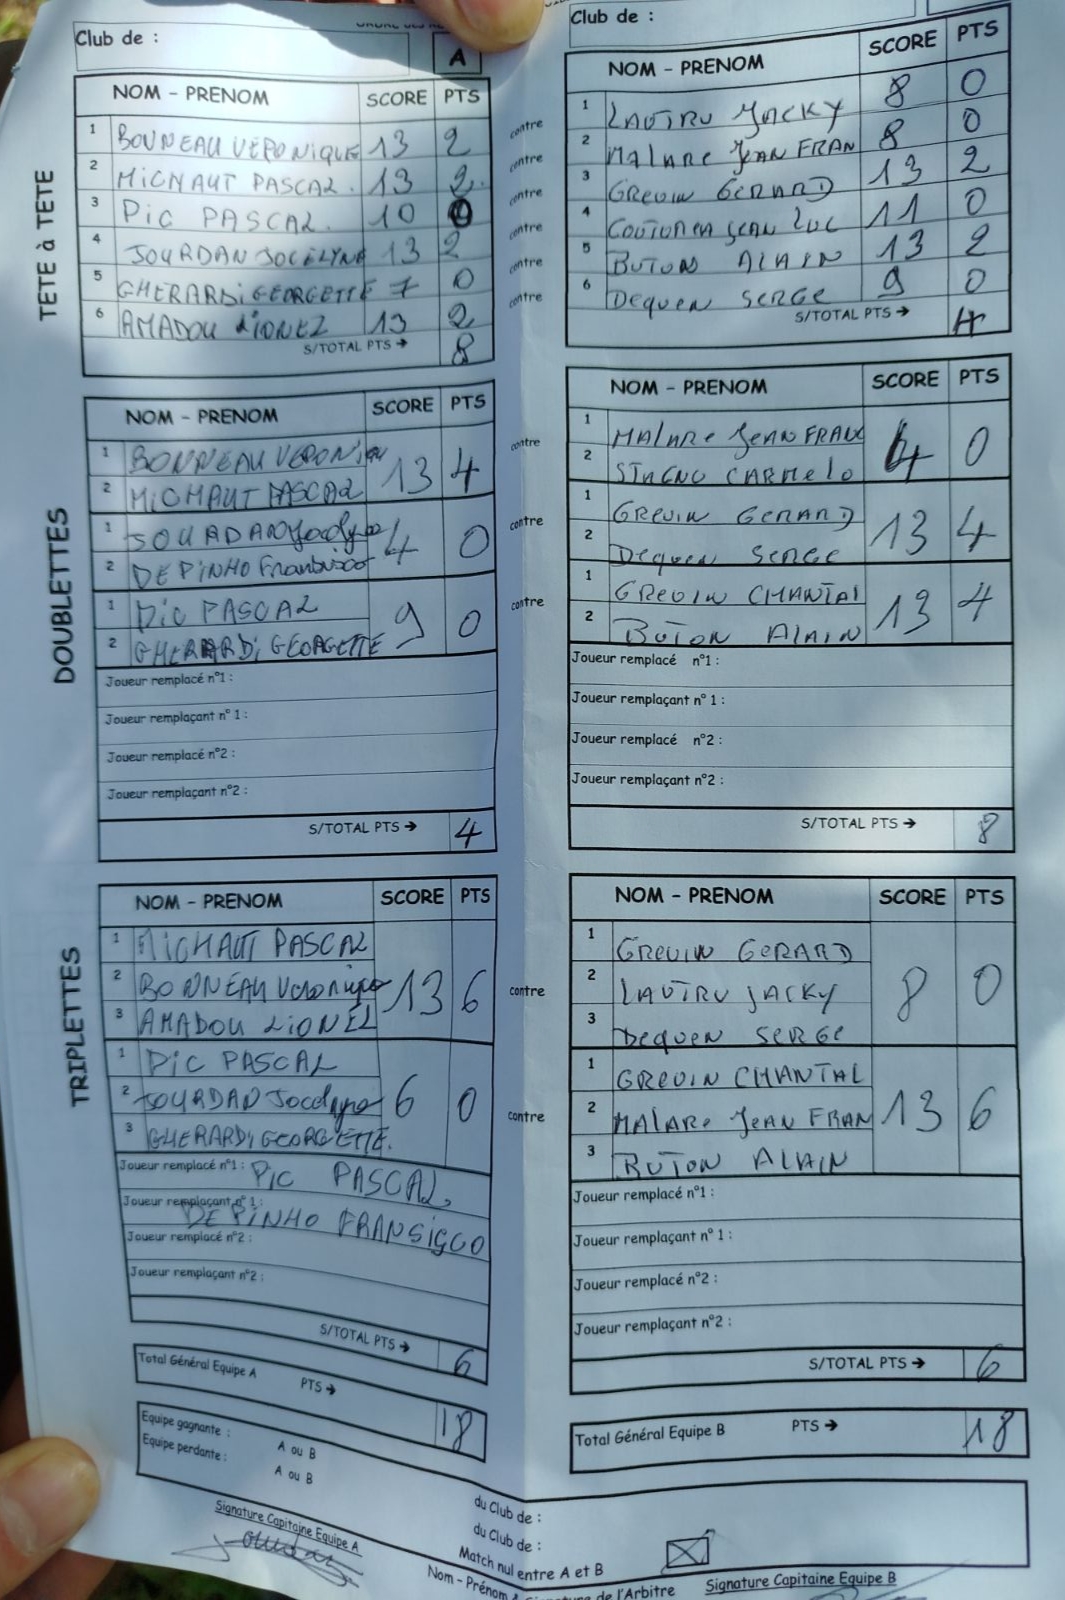 Club de :
A
NOM - PRENOM SCORE PTS
TETE à TETE
1 BONNEAU VERONIQUE 13 2
2 MICHAUT PASCAL. 13 2.
3 PIC PASCAL. 10 0
4 JOURDAN JOCELYNE 13 2
5 GHERARDI GEORGETTE 7 0
6 AMADOU LIONEL 13 2
S/TOTAL PTS → 8
contre
contre
contre
contre
contre
contre
Club de :
NOM - PRENOM SCORE PTS
1 LAUTRU JACKY 8 0
2 MALARE JEAN FRAN 8 0
3 GREVIN GERARD 13 2
4 JEAN LUC 11 0
5 BUTON ALAIN 13 2
6 DEQUEN SERGE 9 0
S/TOTAL PTS → 4
DOUBLETTES
NOM - PRENOM SCORE PTS
1 BONNEAU 13 4
2 MICHAUT PASCAL
1 JOURDAN Jocelyne 4 0
2 DE PINHO
1 PIC PASCAL 9 0
2 GHERARDI GEORGETTE
Joueur remplacé n°1 :
Joueur remplaçant n° 1 :
Joueur remplacé n°2 :
Joueur remplaçant n°2 :
S/TOTAL PTS → 4
contre
contre
contre
NOM - PRENOM SCORE PTS
1 MALARE JEAN FRAN 4 0
2 STAGNO CARMELO
1 GREVIN GERARD 13 4
2 DEQUEN SERGE
1 GREVIN CHANTAL 13 4
2 BUTON ALAIN
Joueur remplacé n°1 :
Joueur remplaçant n° 1 :
Joueur remplacé n°2 :
Joueur remplaçant n°2 :
S/TOTAL PTS → 8
TRIPLETTES
NOM - PRENOM SCORE PTS
1 MICHAUT PASCAL
2 BONNEAU Veronique 13 6
3 AMADOU LIONEL
1 PIC PASCAL
2 JOURDAN Jocelyne 6 0
3 GHERARDI GEORGETTE.
Joueur remplacé n°1 : PIC PASCAL.
Joueur remplaçant n° 1 : DE PINHO FRANSISCO
Joueur remplacé n°2 :
Joueur remplaçant n°2 :
S/TOTAL PTS → 6
contre
contre
NOM - PRENOM SCORE PTS
1 GREVIN GERARD
2 LAUTRU JACKY 8 0
3 DEQUEN SERGE
1 GREVIN CHANTAL
2 MALARE JEAN FRAN 13 6
3 BUTON ALAIN
Joueur remplacé n°1 :
Joueur remplaçant n° 1 :
Joueur remplacé n°2 :
Joueur remplaçant n°2 :
S/TOTAL PTS → 6
Total Général Equipe A PTS → 18
Total Général Equipe B PTS → 18
Equipe gagnante : A ou B du Club de :
Equipe perdante : A ou B du Club de :
Match nul entre A et B
Signature Capitaine Equipe A
Nom - Prénom
de l'Arbitre
Signature Capitaine Equipe B